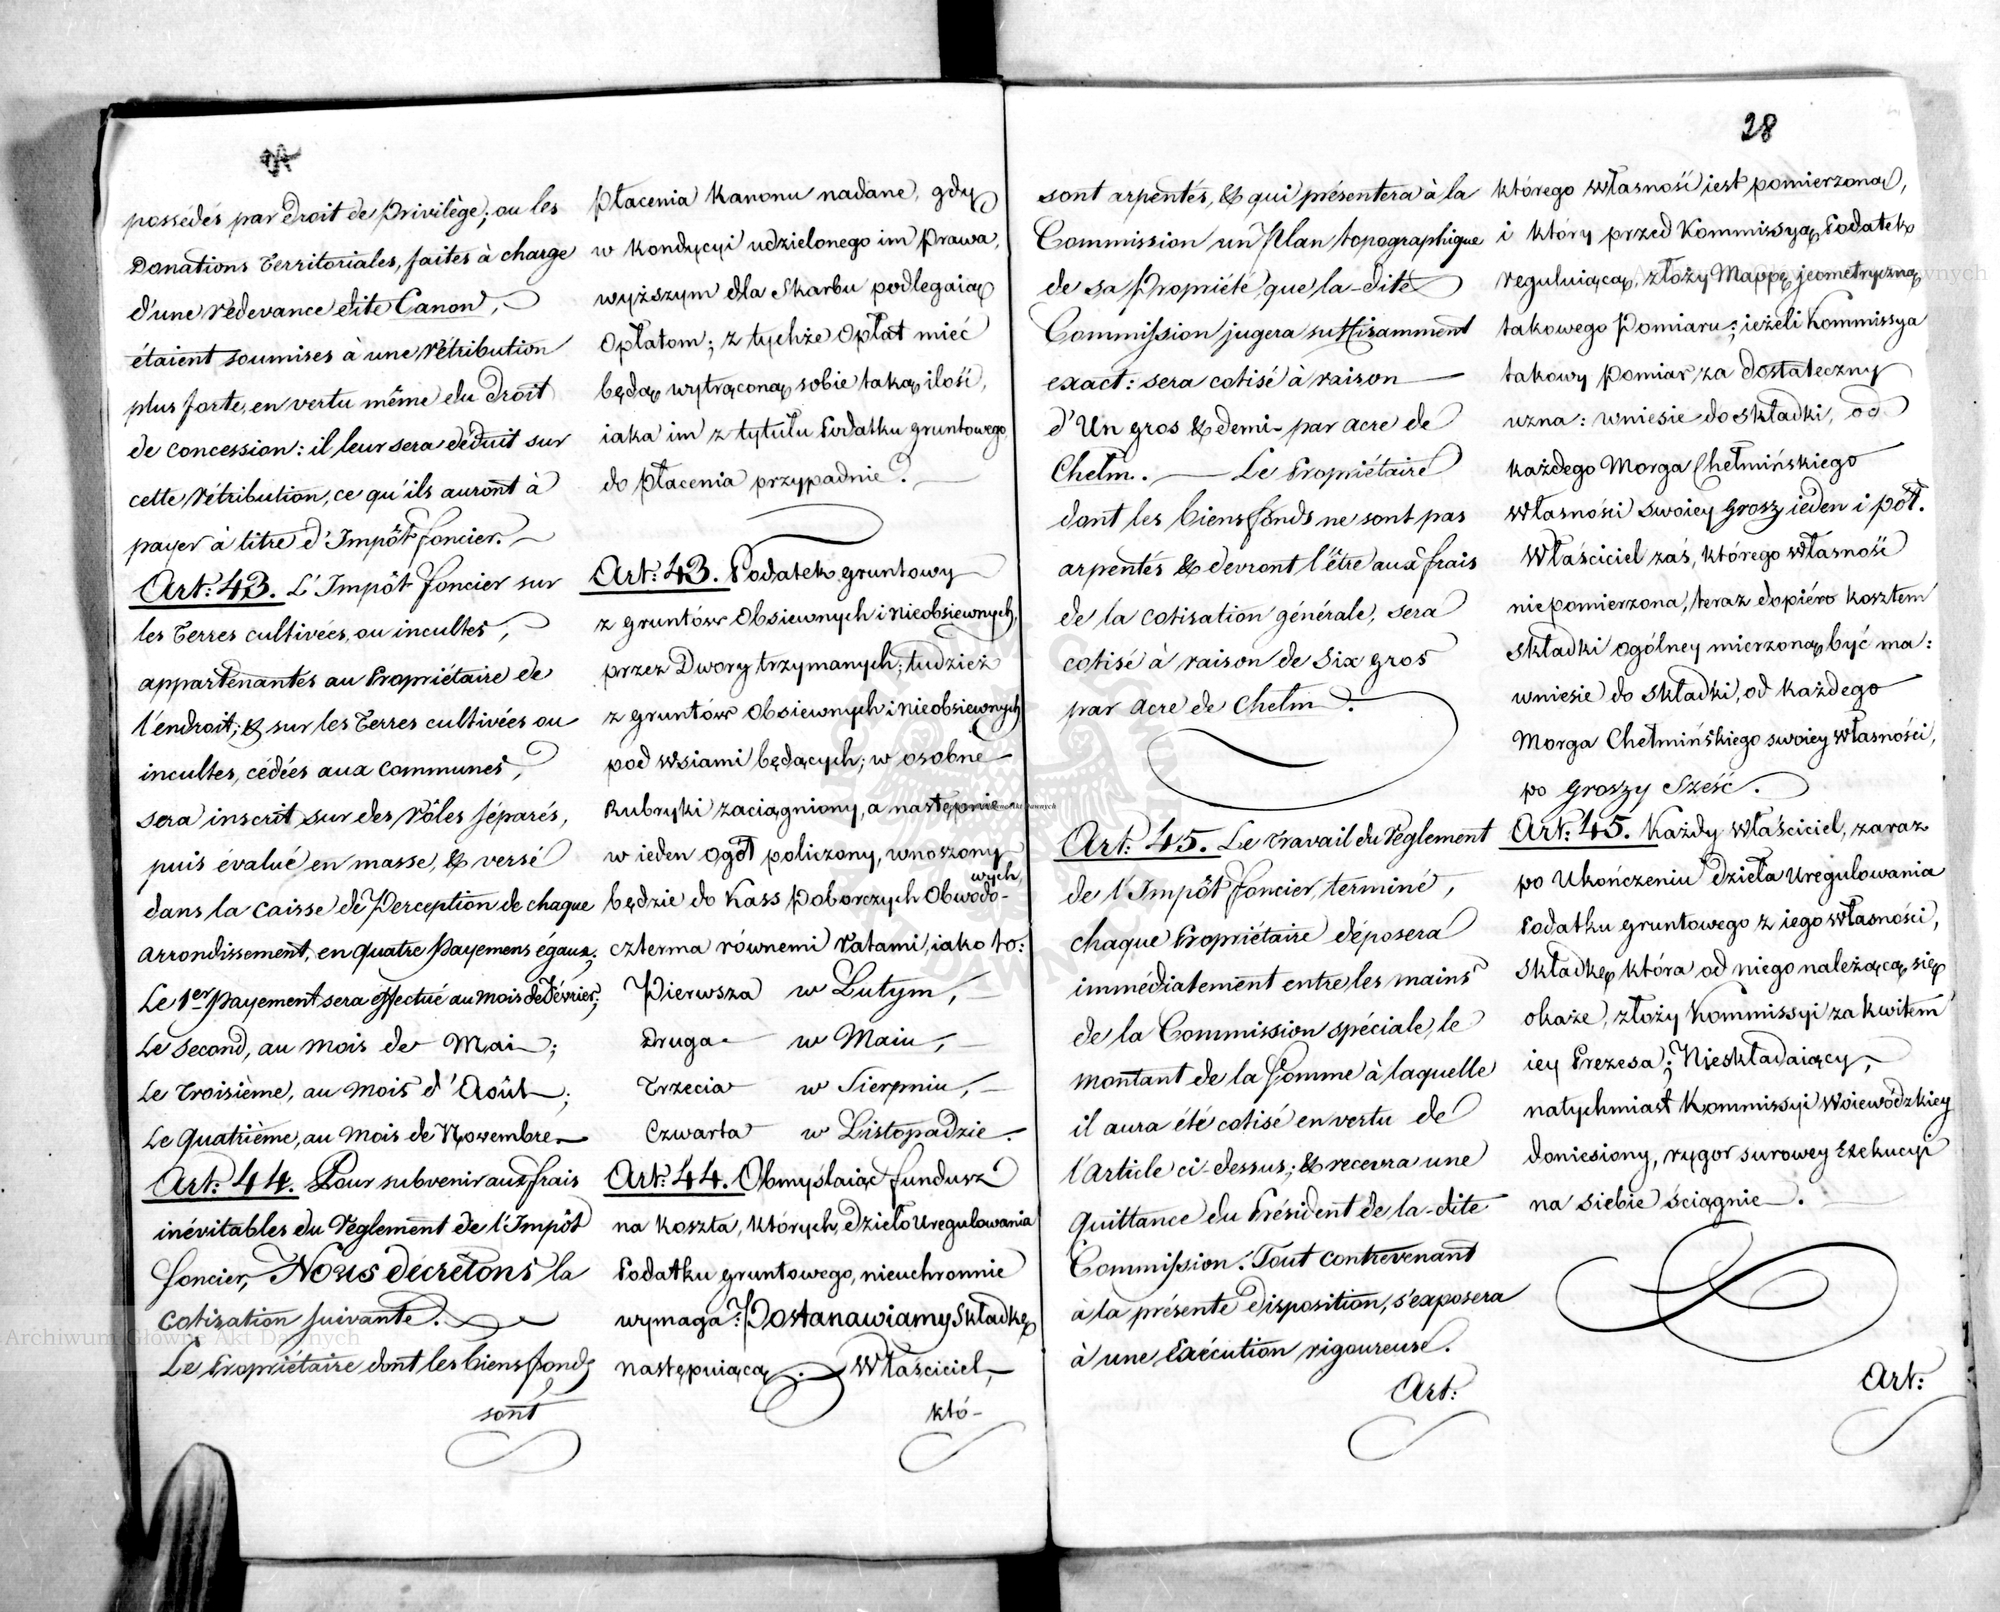 possédés par droit de Privilège; ou les
Donations Territoriales, faites à charge
d'une rédevance dite Canon,
étaient soumises à une rétribution
plus forte, en vertu même du Droit
de concession: il leur sera déduit sur
cette rétribution, ce qu'ils auront à
payer à titre d'Impôt foncier.
Art: 43. L'Impôt foncier sur
les Terres cultivées, ou incultes,
appartenantes au Propriétaire de
l'endroit; & sur les Terres cultivées ou
incultes, cédées aux communes,
sera inscrit sur des rôles séparés,
puis évalué en masse, & versé
dans la caisse de Perception de chaque
arrondissement, en quatre Payemens égaux;
Le 1er Payement sera effectué au mois de Février;
Le Second, au mois de Mai;
Le Troisième, au mois d'Août;
Le Quatrième, au mois de Novembre
Art: 44. Pour subvenir aux frais
inévitables du règlement de l'Impôt
foncier, Nous décrétons la
cotisation suivante.
Le Propriétaire dont les biens fonds
sont
płacenia kanonu nadane, gdy
w kondycyi udzielonego im Prawa,
wyższym dla Skarbu podlegaią
Opłatom; z tychże Opłat mieć
będą wytrąconą sobie taką ilość,
iaka im z tytułu Podatku gruntowego
do płacenia przypadnie.
Art: 43. Podatek gruntowy
z gruntów Obsiewnych i nieobsiewnych,
przez Dwory trzymanych; tudzież
z gruntów Obsiewnych i nieobsiewnych
pod wsiami będących; w osobne
Rubryki zaciągniony, a następnie
w ieden ogół policzony, wnoszony
będzie do Kass Poborczych Obwodo-
wych,
czterma równemi ratami, iako to:
Pierwsza w Lutym,
Druga w Maiu,
Trzecia w Sierpniu,
Czwarta w Listopadzie.
Art: 44. Obmyślaiąc fundusz
na koszta, których, dzieło uregulowania
Podatku gruntowego, nieuchronnie
wymaga: Postanawiamy Składkę
następuiącą. Właściciel,
któ-
28
sont arpentés, & qui présentera à la
Commission un Plan topographique
de sa Propriété, que la-dite
Commission jugera suffisamment
exact: sera cotisé à raison
d'Un gros & demi par acre de
Chełm. Le Propriétaire
dont les biens fonds ne sont pas
arpentés & devront l'être aux frais
de la cotisation générale, sera
cotisé à raison de Six gros
par acre de Chełm.
Art: 45. Le travail du règlement
de l'Impôt foncier, terminé,
chaque Propriétaire déposera
immédiatement entre les mains
de la Commission spéciale, le
montant de la somme à laquelle
il aura été cotisé en vertu de
l'article ci-dessus; & recevra une
Quittance du Président de la-dite
Commission. Tout contrevenant
à la présente disposition, s'exposera
à une Exécution rigoureuse.
Art:
którego własność iest pomierzoną,
i który przed Kommissyą Podatek
reguluiącą, złoży Mappę jeometryczną
takowego Pomiaru; ieżeli Kommissya
takowy pomiar za dostateczny
uzna: wniesie do składki, od
każdego Morga Chełmińskiego
własności swoiey Grosz ieden i pół.
Właściciel zaś, którego własność
niepomierzona, teraz dopiéro kosztem
składki ogólney mierzoną być ma:
wniesie do składki, od każdego
Morga Chełmińskiego swoiey własności,
po groszy Sześć.
Art: 45. Każdy właściciel, zaraz
po ukończeniu dzieła uregulowania
Podatku gruntowego z iego własności,
składkę która od niego należącą się
okaże, złoży Kommissyi za kwitem
iey Prezesa; Nieskładaiący,
natychmiast Kommissyi Woiewódzkiey
doniesiony, rygor surowey Exekucyi
na siebie ściągnie.
Art:
Archiwum Główne Akt Dawnych